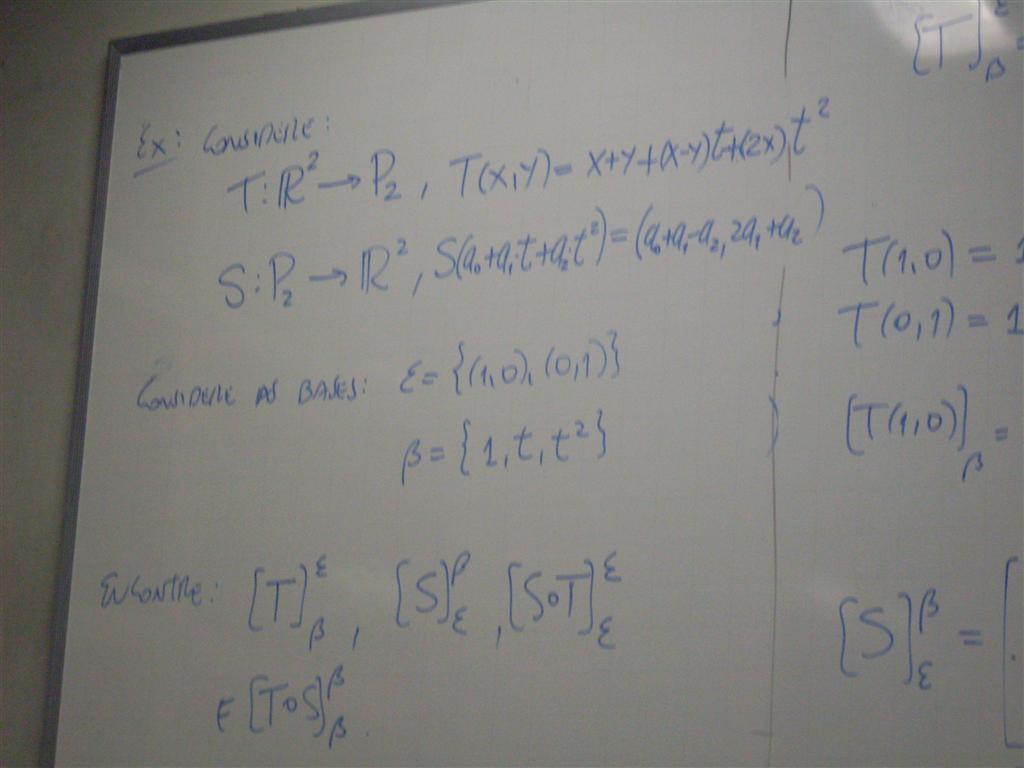 Ex: CONSIDERE:
T: ℝ² → P₂, T(x,y) = x+y+(x-y)t+(2x)t²
S: P₂ → ℝ², S(a₀+a₁t+a₂t²) = (a₀+a₁-a₂, 2a₁+a₂)
CONSIDERE AS BASES: ε = {(1,0), (0,1)}
β = {1, t, t²}
ENCONTRE: [T]^ε_β, [S]^β_ε, [S∘T]^ε_ε
E [T∘S]^β_β.
[T]^ε_β =
T(1,0) = 1
T(0,1) = 1
[T(1,0)]_β =
[S]^β_ε = [